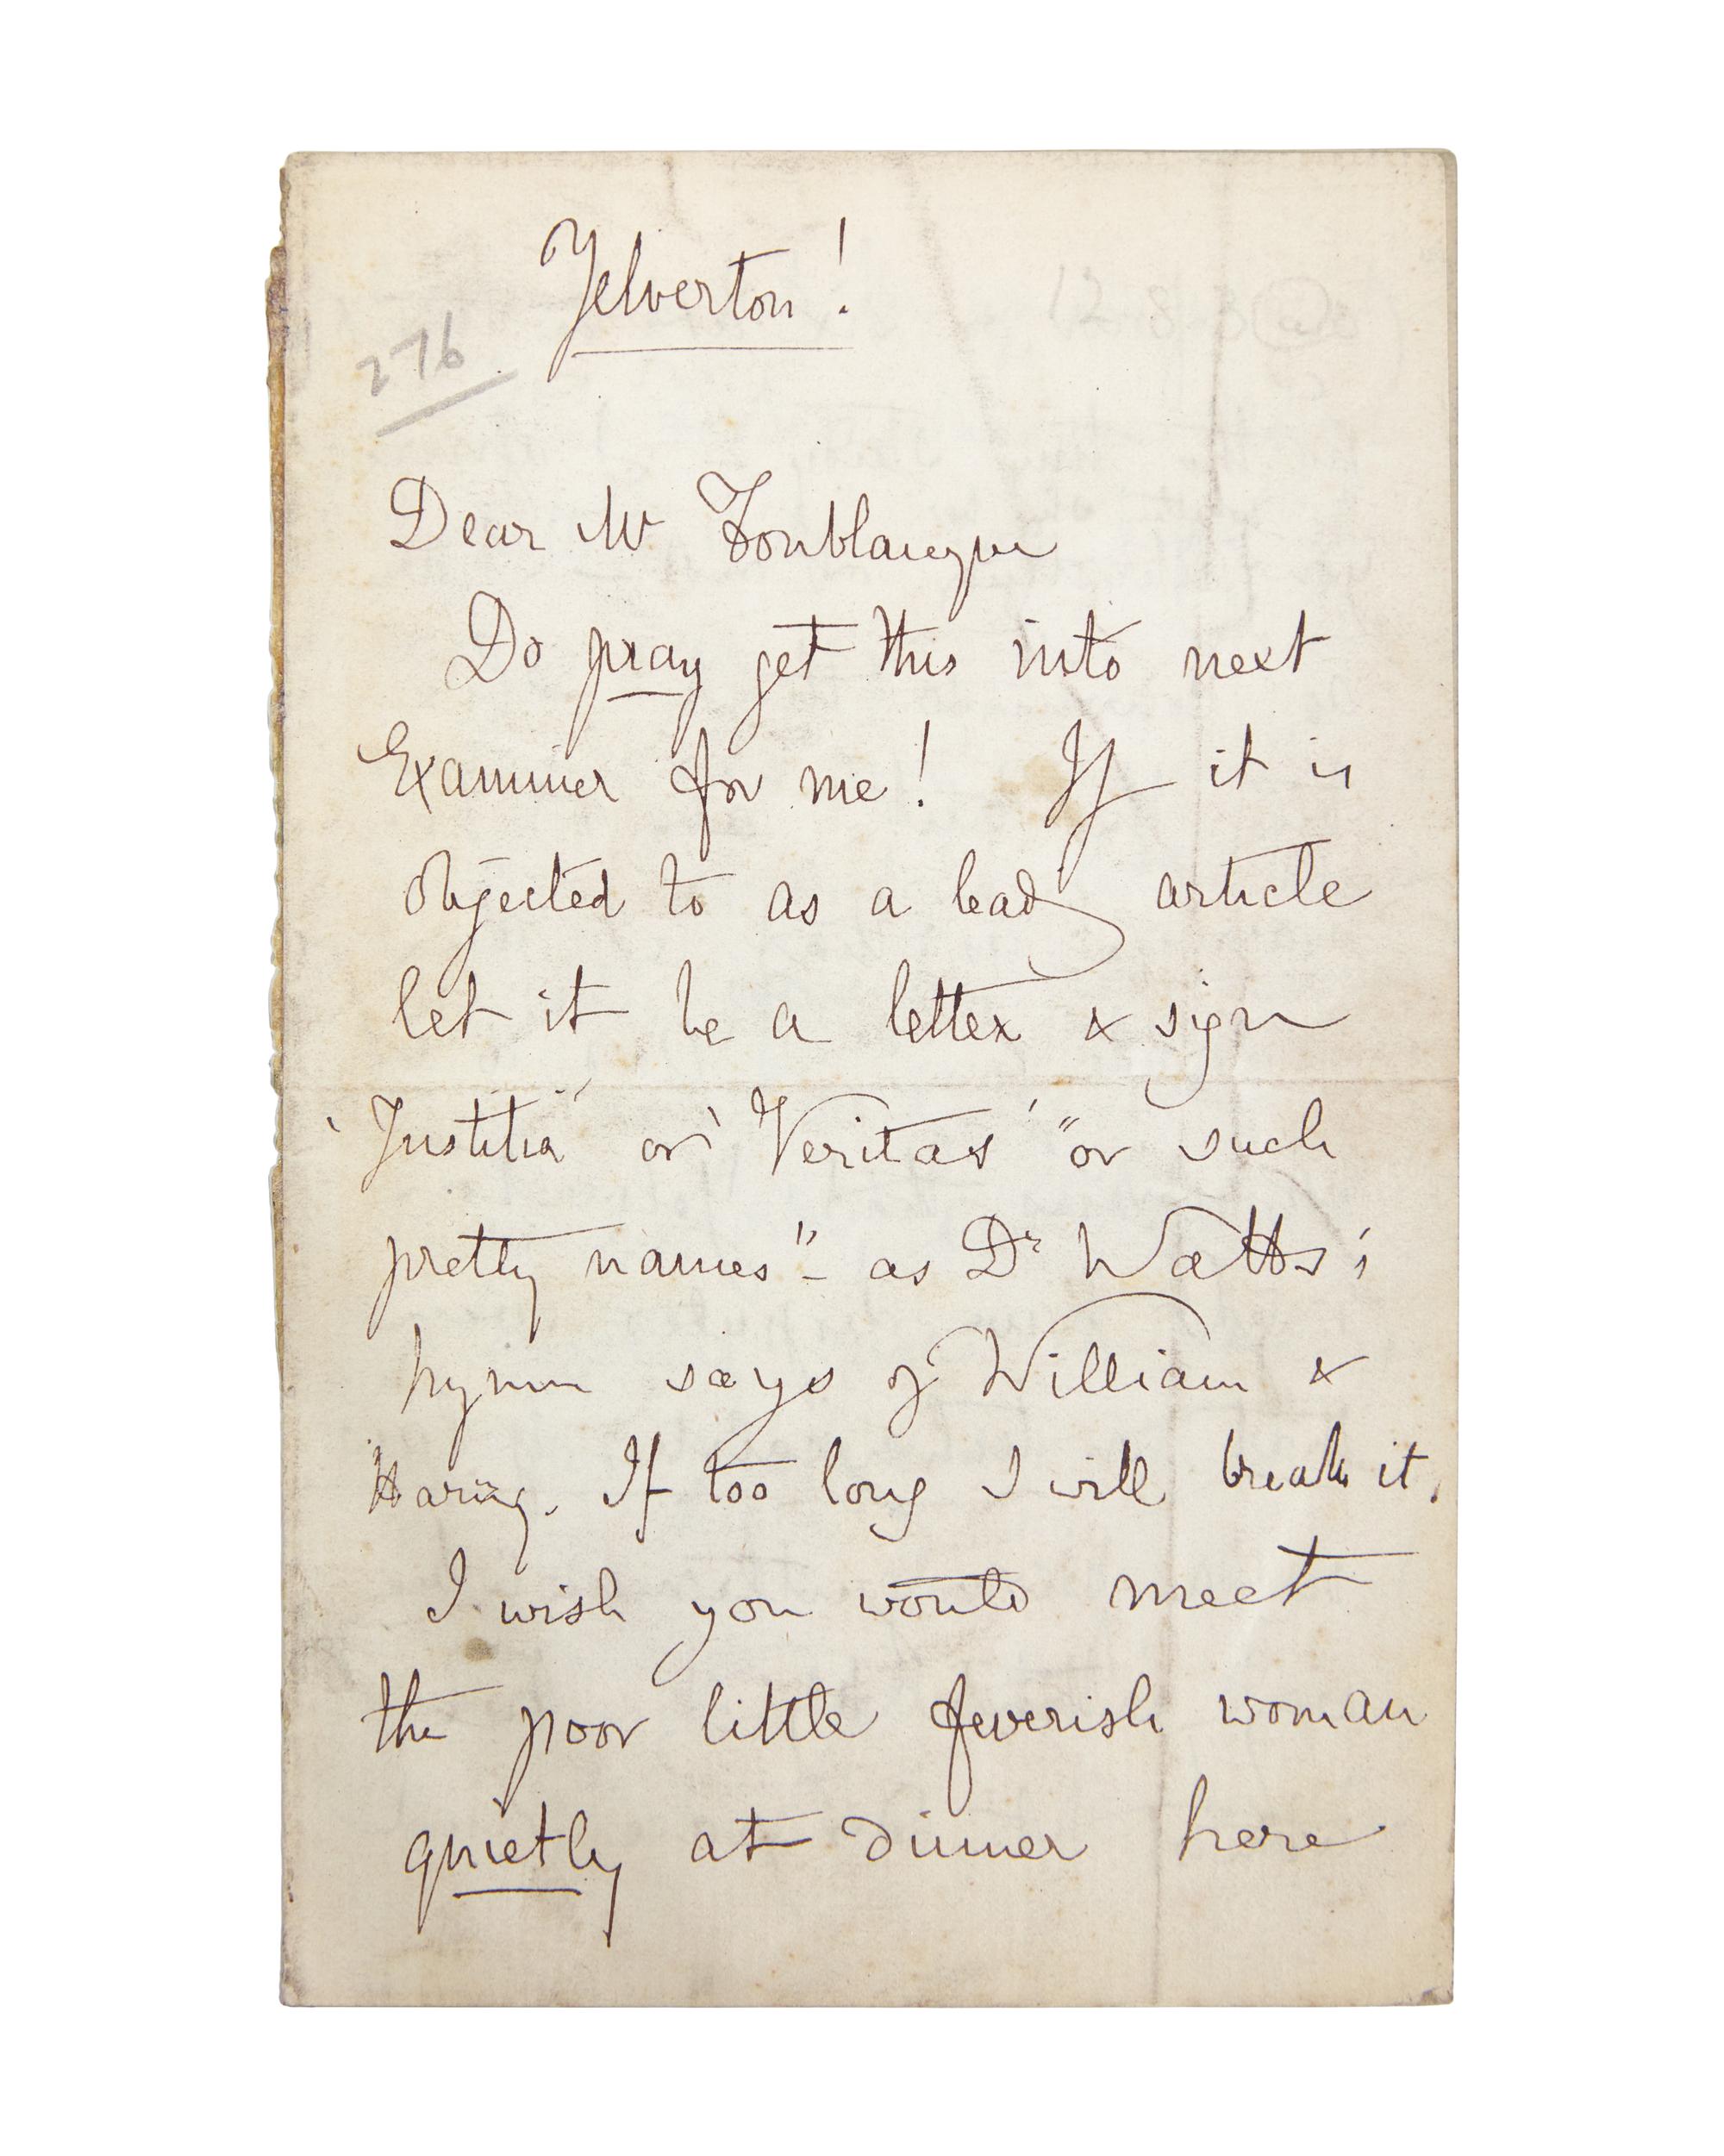 Yelverton!
276
Dear Mr Fonblanque
Do pray get this into next
Examiner for me! If it is
objected to as a leadg article
let it be a letter & sign
'Justitia' or 'Veritas' "or such
pretty names" - as Dr Watts's
hymn says of William &
Harry. If too long I will break it.
I wish you would meet
the poor little feverish woman
quietly at dinner here